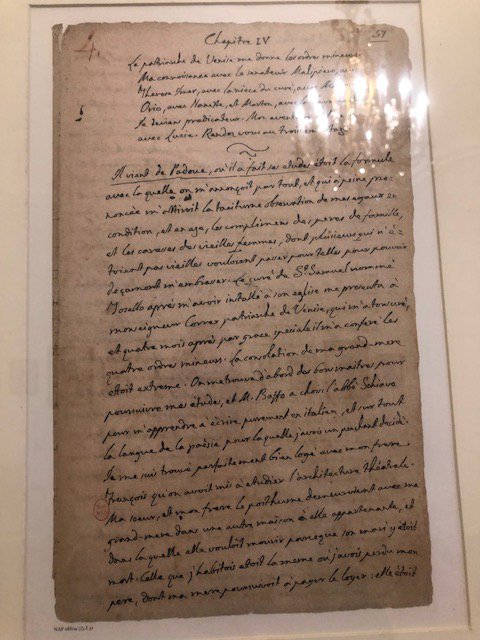 Chapitre IV
57
Le patriarche de Venise me donne les ordres mineurs.
Ma connoissance avec le senateur Malipiero, avec
Therese Imer, avec la niece du curé, avec
Orio, avec Nanette, et Marton, avec la
Je deviens predicateur. Mon avent
avec Lucie. Rendez vous au troisieme
Il vient de Padoue, où il a fait ses etudes étoit la formule
avec la quelle on m'annonçoit par tout, et qui à peine pro-
noncée m'attiroit la taciturne observation de mes egaux en
condition, et en age, les complimens des peres de famille,
et les caresses des vieilles femmes, dont plusieurs qui n'é-
toient pas vieilles vouloient passer pour telles pour pouvoir
decemment m'embrasser. Le curé de St. Samuel nommé
Tosello après m'avoir installé à son eglise me presenta à
monseigneur Correr patriarche de Venise, qui m'a tonsuré,
et quatre mois après par grace speciale il m'a conferé les
quatre ordres mineurs. La consolation de ma grand-mere
étoit extreme. On me trouva d'abord des bons maitres pour
poursuivre mes études, et M. Baffo a choisi l'abbé Schiavo
pour m'apprendre à écrire purement en italien, et sur tout
la langue de la poèsie pour la quelle j'avois un penchant decidé.
Je me suis trouvé parfaitement bien logé avec mon frere
François qu'on avoit mis à etudier l'architecture théatrale.
Ma sœur, et mon frere le posthume demeuroient avec ma
grand-mere dans une autre maison à elle appartenante, et
dans la quelle elle vouloit mourir parceque son mari y étoit
mort. Celle que j'habitois étoit la meme où j'avois perdu mon
pere, dont ma mere poursuivoit à payer le loyer: elle étoit